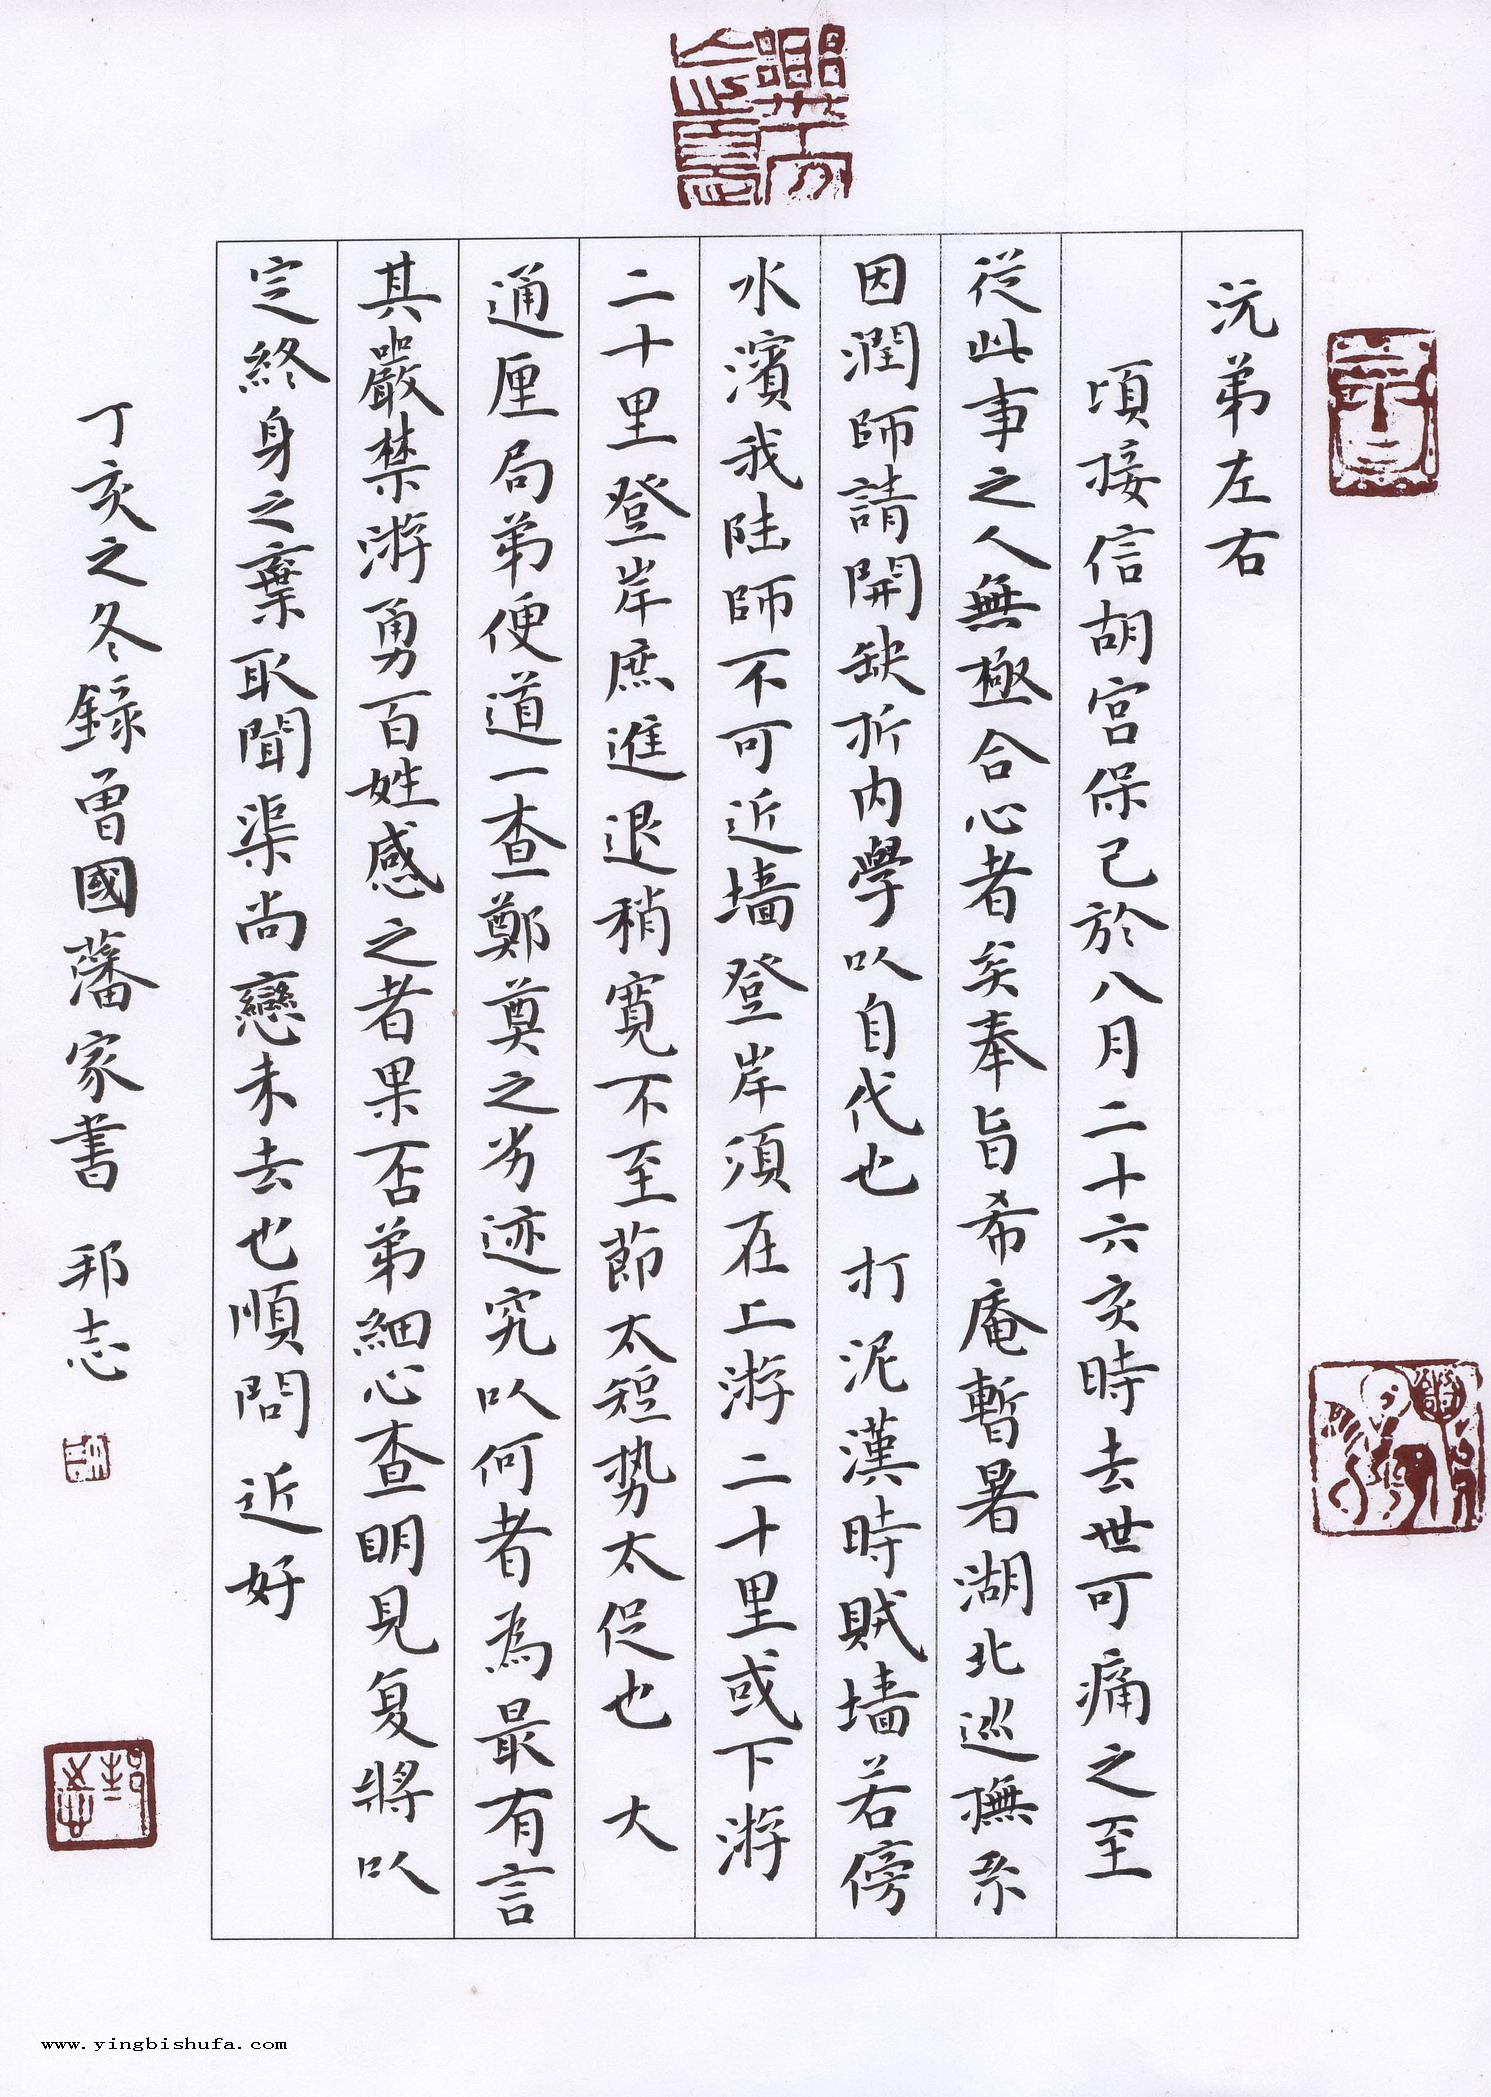 沅弟左右
頃接信胡宮保已於八月二十六亥時去世可痛之至
從此事之人無極合心者矣奉旨希庵暫署湖北巡撫系
因潤師請開缺折内學以自代也 打泥漢時賊墻若傍
水濱我陆師不可近墻登岸須在上游二十里或下游
二十里登岸庶進退稍寬不至節太短势太促也 大
通厘局弟便道一查鄭奠之劣迹究以何者為最有言
其嚴禁游勇百姓感之者果否弟細心查明見复將以
定終身之棄取聞渠尚戀未去也順問近好
丁亥之冬錄曾國藩家書 邦志
www.yingbishufa.com